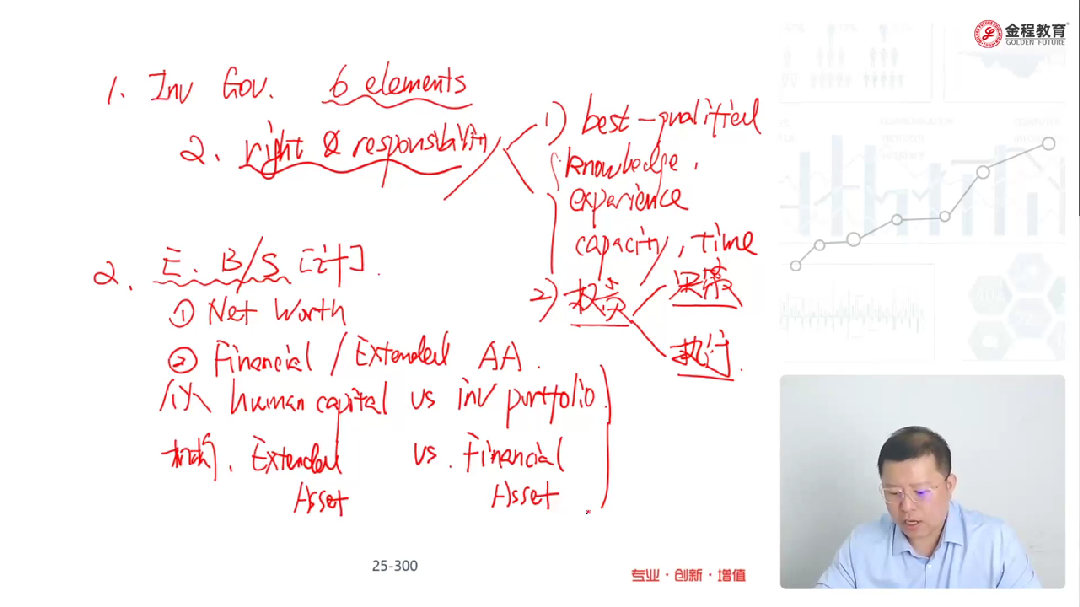 金程教育
GOLDEN FUTURE
1. Inv Gov. 6 elements
2、right & responsibility
1) best-qualified
knowledge,
experience
capacity, time
2) 权责
决策
执行
2. E. B/S [计].
① Net Worth
② Financial / Extended AA.
个人 human capital vs inv portfolio.
机构. Extended Asset vs. Financial Asset
25-300
专业·创新·增值